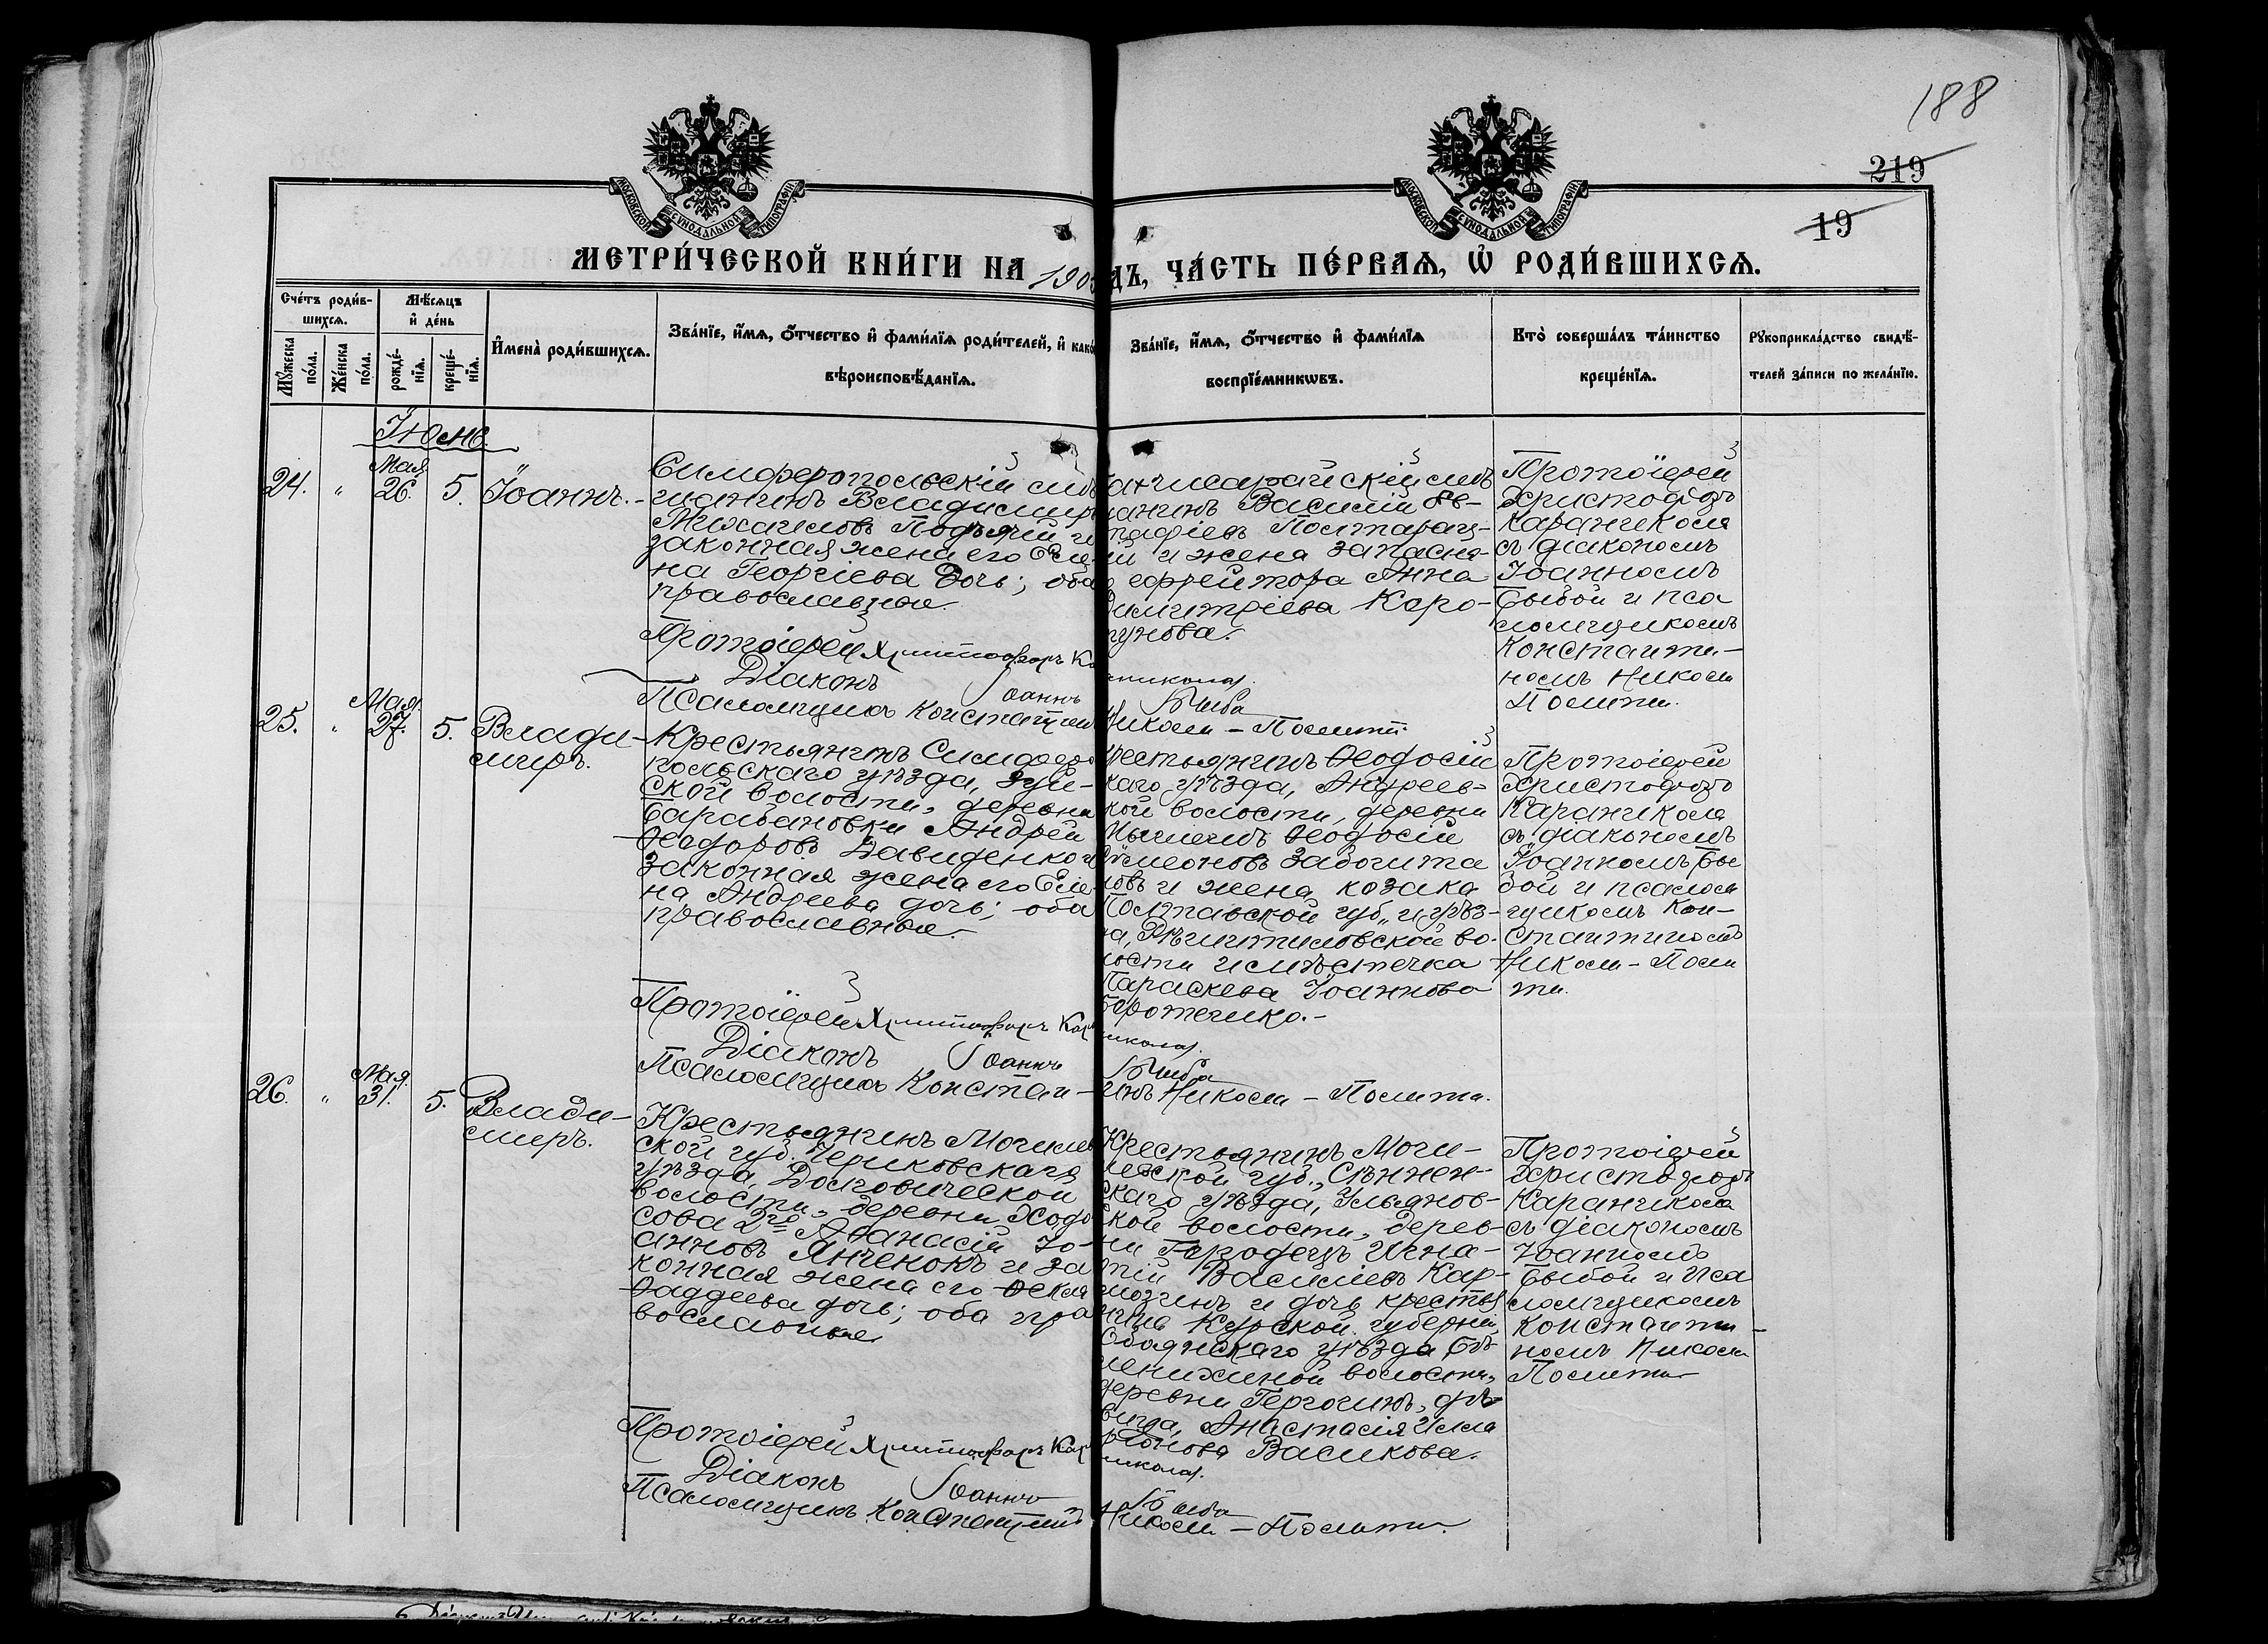 188
219
19
МОСКОВСКОЙ СѴНОДАЛЬНОЙ ТИПОГРАФІИ
МОСКОВСКОЙ СѴНОДАЛЬНОЙ ТИПОГРАФІИ
МЕТРИ́ЧЕСКОЙ КНИ́ГИ НА 190
дъ, ЧА́СТЬ ПЕ́РВАѦ, Ѡ҆ РОДИ́ВШИХСѦ.
Сче́тъ роди́в-
шихсѧ.
Мѣ́сѧцъ
и҆ де́нь
Мꙋ́жеска по́ла.
Же́нска по́ла.
рожде́-
нїѧ.
креще́-
нїѧ.
И҆мена̀ роди́вшихсѧ.
Зва́нїе, и҆́мѧ, ѻ҆́тчество и҆ фами́лїѧ роди́телей, и҆ како́
вѣроисповѣ́данїѧ.
Зва́нїе, и҆́мѧ, ѻ҆́тчество и҆ фами́лїѧ
воспрїе́мникѡвъ.
Кто̀ соверша́лъ та́инство
креще́нїѧ.
Рꙋкоприкла́дство свидѣ́-
телей за́писи по жела́нїю.
Іюнь.
24. " Мая 26. 5. Іоаннъ.
Симферопольскій мѣ
щанинъ Владимір
Михаиловъ Подъячій и
законная жена его Еле
на Георгіева дочь; оба
православные.
ахчисарайскій мѣ
щанинъ Василій Ев-
тафіевъ Полтарац-
ій и жена запасна-
о ефрейтора Анна
Димитріева Каро-
гунова.
Протоіерей
Христофоръ
Каранчикола
съ діакономъ
Іоанномъ
Быбой и пса
ломщикомъ
Константи-
номъ Николи
Полити.
Протоіерей Христофоръ Ка
никола.
Діаконъ Іоаннъ
Быба
Псаломщикъ Константин
Николи - Полити
25. " Мая 27. 5. Влади-
міръ.
Крестьянинъ Симферо
польскаго уѣзда, Зуй-
ской волости, деревни
Барабановки Андрей
Ѳеодоровъ Давиденко и
законная жена его Еле
на Андреева дочь; оба
православные.
рестьянинъ Ѳеодосій
скаго уѣзда, Андреев-
ской волости, деревни
Ѳеодосій
Сѵмеоновъ
овъ и жена козака
Полтавской губ. и уѣз-
да, Рѣшетиловской во-
лости и мѣстечка
Параскева Іоаннова
Протоіерей
Христофоръ
Каранчикола
съ діакономъ
Іоанномъ Бы
бой и псалом
щикомъ Кон-
стантиномъ
Николи - Поли
ти.
Протоіерей Христофоръ Кар
никола.
Діаконъ Іоаннъ
Быба
Псаломщикъ Констан-
тинъ Николи - Полити.
26. " Мая 31. 5. Влади-
міръ.
Крестьянинъ Могилев
ской губ. Чериковскаго
уѣзда, Долговической
волости, деревни Ходо
сова 2го Аѳанасій Іо-
анновъ Янченокъ и за
конная жена его Ѳекла
Ѳаддеева дочь; оба пра
вославные
Крестьянинъ Моги-
левской губ., Сѣннен-
скаго уѣзда, Ульянов-
ской волости, дерев-
ни Городецъ Игна-
тій Василіевъ Кар-
мозинъ и дочь крестья
нина Курской губерніи
Обоянскаго уѣзда, Бѣ
ленихиной волости,
деревни дѣ-
вица, Анастасія Илла
ріонова Васикова.
Протоіерей
Христофоръ
Каранчикола
съ діакономъ
Іоанномъ
Быбой и пса
ломщикомъ
Константи-
номъ Николи
Полити
Протоіерей Христофоръ Кар
никола.
Діаконъ Іоаннъ
Быба
Псаломщикъ Константинъ
Николи - Полити.